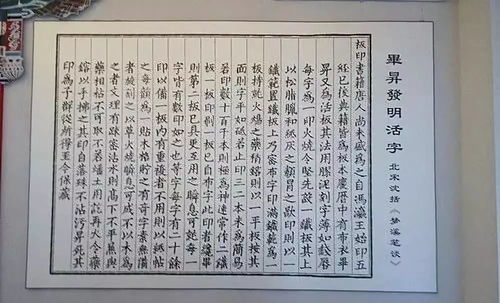 畢昇發明活字 北宋沈括《夢溪筆談》
板印書籍唐人尚未盛為之自馮瀛王始印五
經已後典籍皆為板本慶曆中有布衣畢
昇又為活板其法用膠泥刻字薄如錢唇
每字為一印火燒令堅先設一鐵板其上
以松脂臘和紙灰之類冒之欲印則以一
鐵範置鐵板上乃密布字印滿鐵範為一
板持就火煬之藥稍鎔則以一平板按其
面則字平如砥若止印三二本未為簡易
若印數十百千本則極為神速常作二鐵
板一板印刷一板已自布字此印者纔畢
則第二板已具更互用之瞬息可就每一
字皆有數印如之也等字每字有二十餘
印以備一板內有重複者不用則以紙貼
之每韻為一貼木格貯之有奇字素無備
者旋刻之以草火燒瞬息可成不以木為
之者文理有疏密沾水則高下不平兼與
藥相粘不可取不若燔土用訖再火令藥
鎔以手拂之其印自落殊不沾污昇死其
印為予群從所得至今保藏